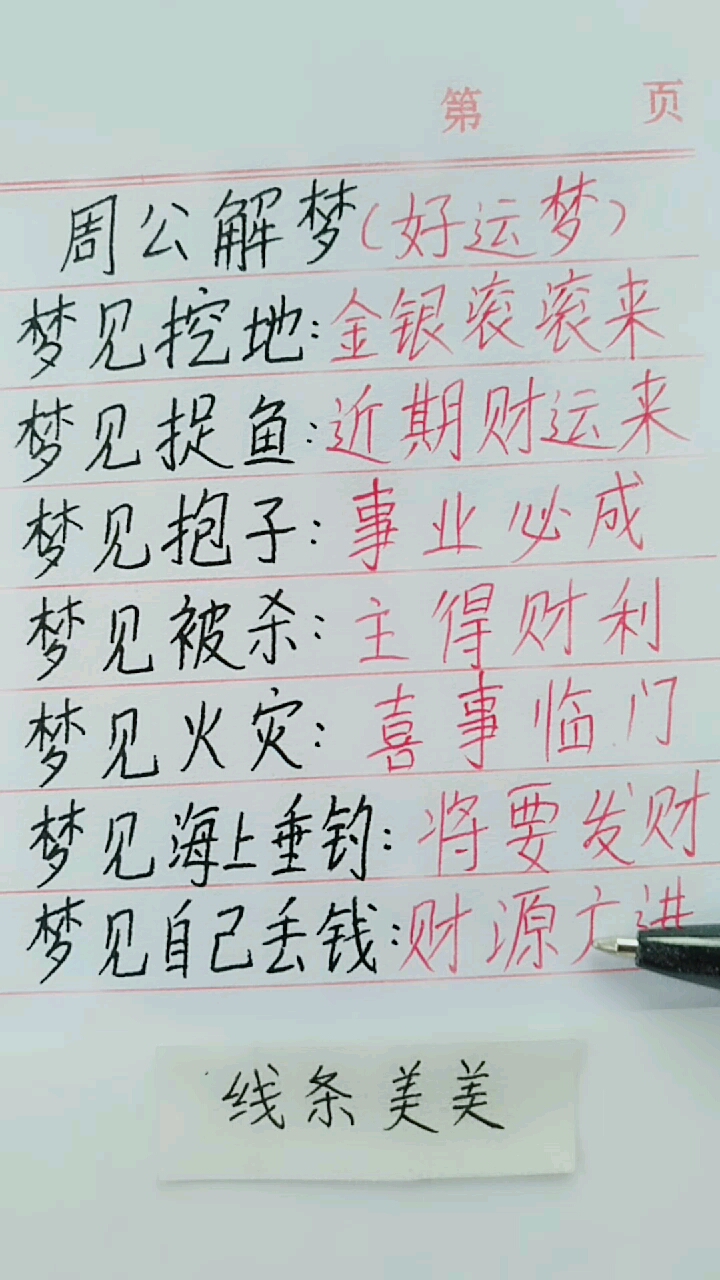 第 页
周公解梦(好运梦)
梦见挖地:金银滚滚来
梦见捉鱼:近期财运来
梦见抱子:事业必成
梦见被杀:主得财利
梦见火灾:喜事临门
梦见海上垂钓:将要发财
梦见自己丢钱:财源广进
线条美美